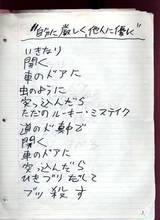 "的に厳しく、他人に優しく"
いきなり
開く
車のドアに
虫のように
突っ込んだら
ただのルーキー・ミステイク
道のド真中で
開く
車のドアに
突っ込んだら
ひきづりだして
ブッ殺す